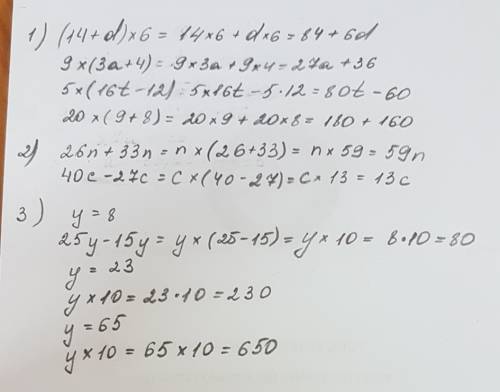 1) (14+d)×6 = 14×6 + d×6 = 84 + 6d
9×(3a+4) = 9×3a + 9×4 = 27a + 36
5×(16t-12) = 5×16t - 5·12 = 80t - 60
20×(9+8) = 20×9 + 20×8 = 180 + 160
2) 26n + 33n = n×(26+33) = n×59 = 59n
40c - 27c = c×(40-27) = c×13 = 13c
3) y = 8
25y - 15y = y×(25-15) = y×10 = 8·10 = 80
y = 23
y×10 = 23·10 = 230
y = 65
y×10 = 65×10 = 650